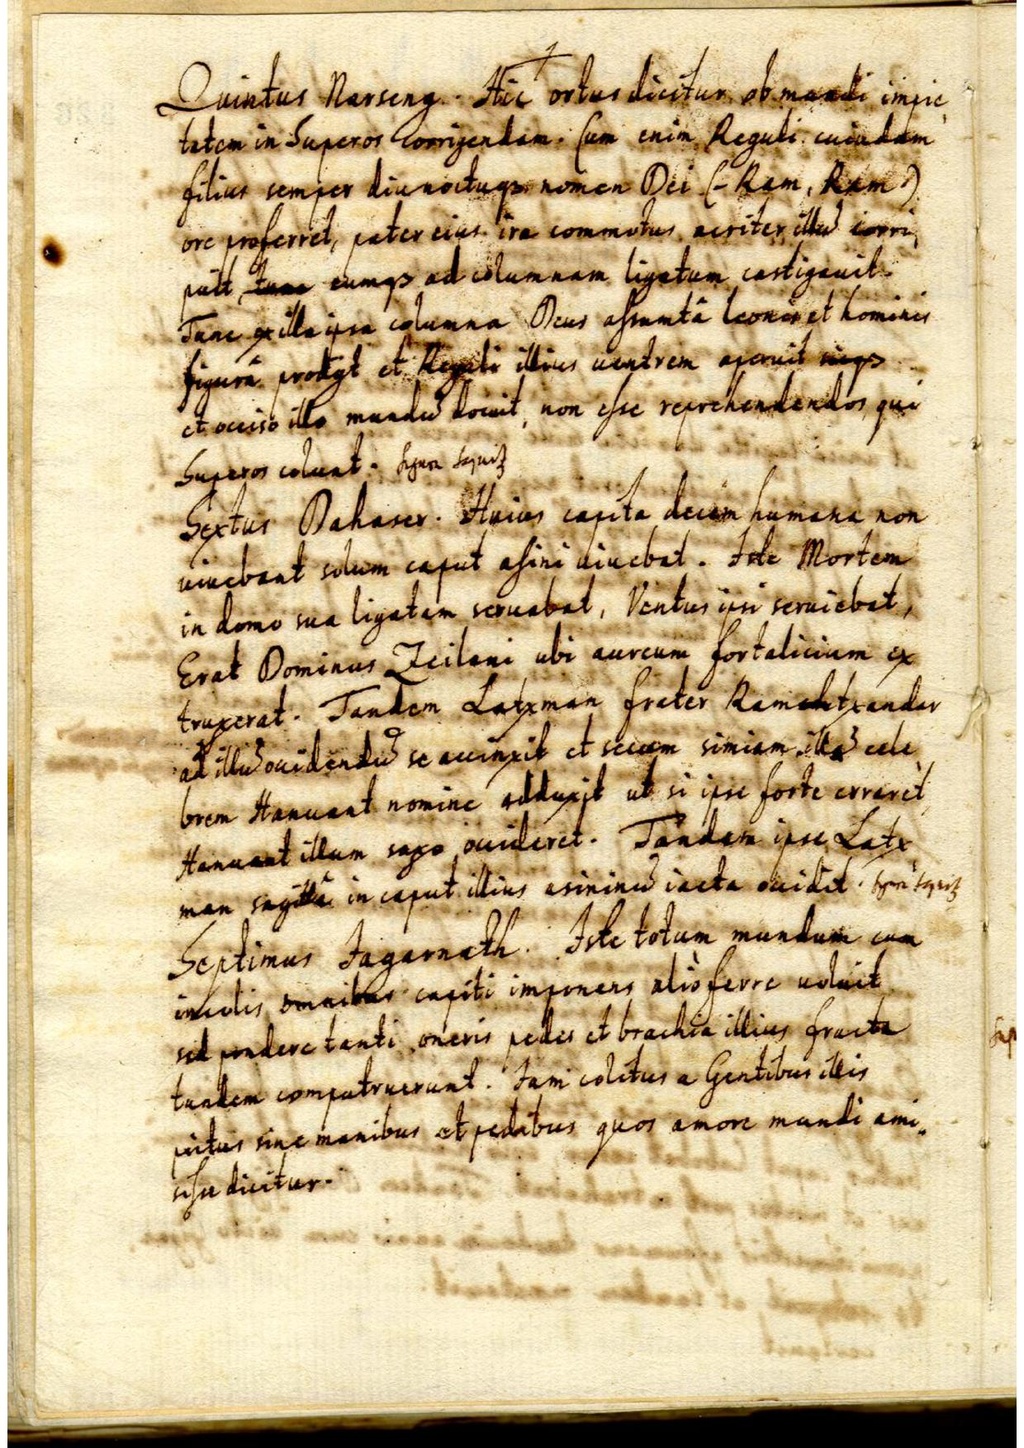 Quintus Narseng. Hic ortus dicitur ob mundi impie,
tatem in Superos corrigendam. Cum enim Reguli cuiusdam
filius semper diu noctuqz nomen Dei (- Ram, Ram -)
ore proferret, pater eius ira commotus acriter illū corri,
puit, tunc eumqz ad columnam ligatum castigauit.
Tunc ex illa ipsa columna Deus assumtâ leonis et hominis
figurâ prodijt et Reguli illius uentrem aperuit
et occiso illo mundū docuit, non esse reprehendendos, qui
Superos colunt. figura sequitʒ
Sextus Dahaser. Huius capita decem humana non
uiuebant solum caput asini uiuebat. Iste Mortem
in domo sua ligatam seruabat, Ventus ipsi seruiebat,
Erat Dominus Zeilani ubi aureum fortalicium ex
truxerat. Tandem Latxman frater Ramchtxandar
ad illū occidendū se accinxit et secum simiam illā cele,
brem Hanuant nomine adduxit ut si ipse forte erraret,
Hanuant illum saxo occideret. Tandem ipse Latx
man sagittâ in caput illius asininū iacta occidit. figura sequitʒ
Septimus Jagarnath. Iste totum mundum cum
incolis omnibus capiti imponens aliò ferre uoluit
sed pondere tanti oneris pedes et brachia illius fracta
tandem computruerunt. Jam colitus a Gentibus illis
pictus sine manibus et pedibus quos amore mundi ami,
sisse dicitur.